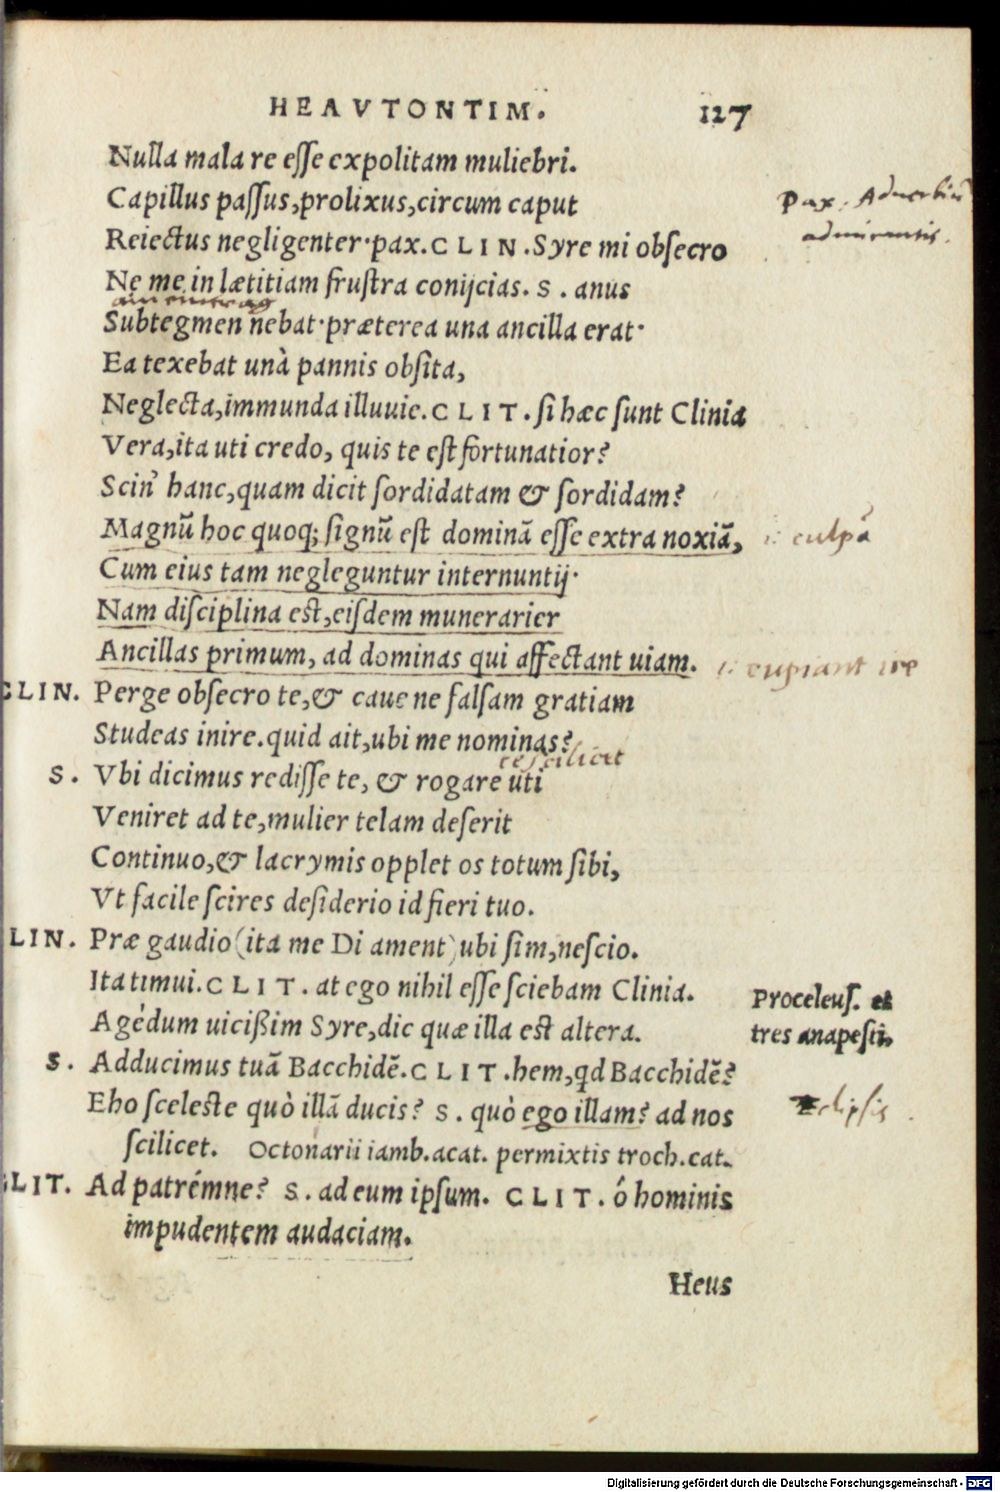 HEAVTONTIM. 127
Nulla mala re esse expolitam muliebri.
Capillus passus,prolixus,circum caput
Pax. Aduerbiū
Reiectus negligenter·pax.CLIN.Syre mi obsecro
admirantis.
Ne me in lætitiam frustra conijcias. S. anus
Subtegmen nebat·præterea una ancilla erat·
Ea texebat unà pannis obsita,
Neglecta,immunda illuuie.CLIT. si hæc sunt Clinia
Vera,ita uti credo, quis te est fortunatior?
Scin' hanc,quam dicit sordidatam & sordidam?
Magnū hoc quoq; signū est dominā esse extra noxiā, culpā
Cum eius tam negleguntur internuntij·
Nam disciplina est,eisdem munerarier
Ancillas primum, ad dominas qui affectant uiam. cupiant ire
CLIN. Perge obsecro te,& caue ne falsam gratiam
Studeas inire.quid ait,ubi me nominas?
scilicet
S. Vbi dicimus redisse te, & rogare uti
Veniret ad te,mulier telam deserit
Continuo,& lacrymis opplet os totum sibi,
Vt facile scires desiderio id fieri tuo.
LIN. Præ gaudio(ita me Di ament)ubi sim,nescio.
Ita timui.CLIT. at ego nihil esse sciebam Clinia.
Proceleus. et
Agédum uicißim Syre,dic quæ illa est altera.
tres anapesti,
S. Adducimus tuā Bacchidē.CLIT.hem,qd Bacchidē?
Eho sceleste quò illā ducis? S. quò ego illam? ad nos
eclipsis
scilicet. Octonarii iamb.acat. permixtis troch.cat.
CLIT. Ad patrémne? S. ad eum ipsum. CLIT. ó hominis
impudentem audaciam.
Heus
Digitalisierung gefördert durch die Deutsche Forschungsgemeinschaft - DFG